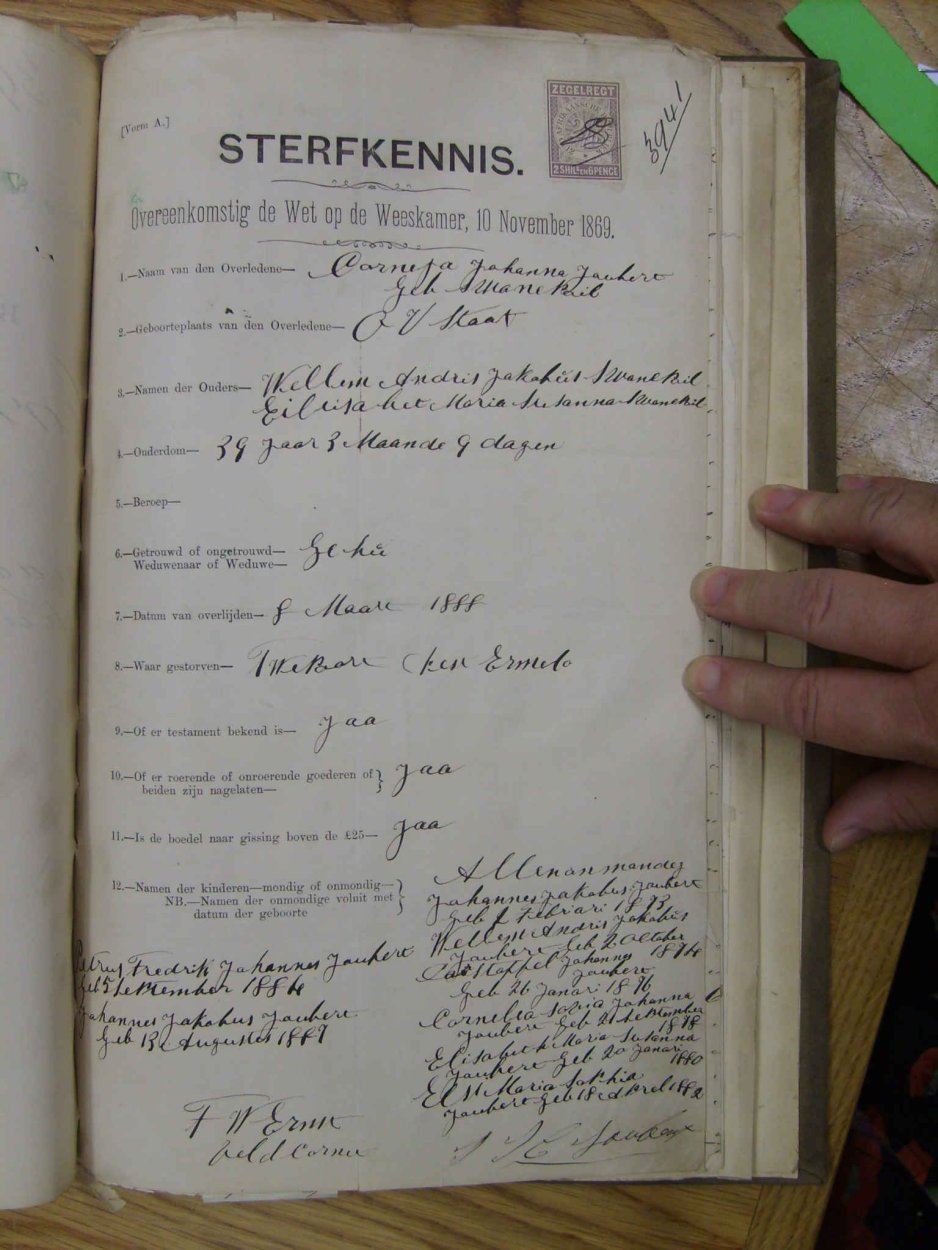 [Vorm A.]
ZEGELREGT
2 SHILS EN 6 PENCE
3941
STERFKENNIS.
Overeenkomstig de Wet op de Weeskamer, 10 November 1869.
1.—Naam van den Overledene— Cornelia Johanna Joubert
geb Swanepoel
2.—Geboorteplaats van den Overledene— O V Staat
3.—Namen der Ouders— Willem Andris Jakobus Swanepoel
Maria Susanna Swanepoel
4.—Ouderdom— 39 Jaar 3 Maande 9 dagen
5.—Beroep—
6.—Getrouwd of ongetrouwd—
Weduwenaar of Weduwe— Gehu
7.—Datum van overlijden— 8 Maart 1888
8.—Waar gestorven— Ermelo
9.—Of er testament bekend is— Jaa
10.—Of er roerende of onroerende goederen of} Jaa
beiden zijn nagelaten—
11.—Is de boedel naar gissing boven de £25— Jaa
12.—Namen der kinderen—mondig of onmondig—}
NB.—Namen der onmondige voluit met
datum der geboorte
Johannes Jakobus Joubert
Geb 1 Februari 1873
Willem Andris Jakobus
Joubert Geb 2 Oktober
1874
Johannes
Joubert
Geb 26 Janari 1876
Cornelia Sofia Johanna
Joubert Geb 21 September
1878
Elisabeth Maria Susanna
Joubert Geb 20 Janari
1880
Maria Sophia
Joubert Geb 18 April 1882
Petrus Fredrik Johannes Joubert
Geb 5 September 1884
Johannes Jakobus Joubert
Geb 13 Augustus
F W Ernst
Veldcornet
Joubert